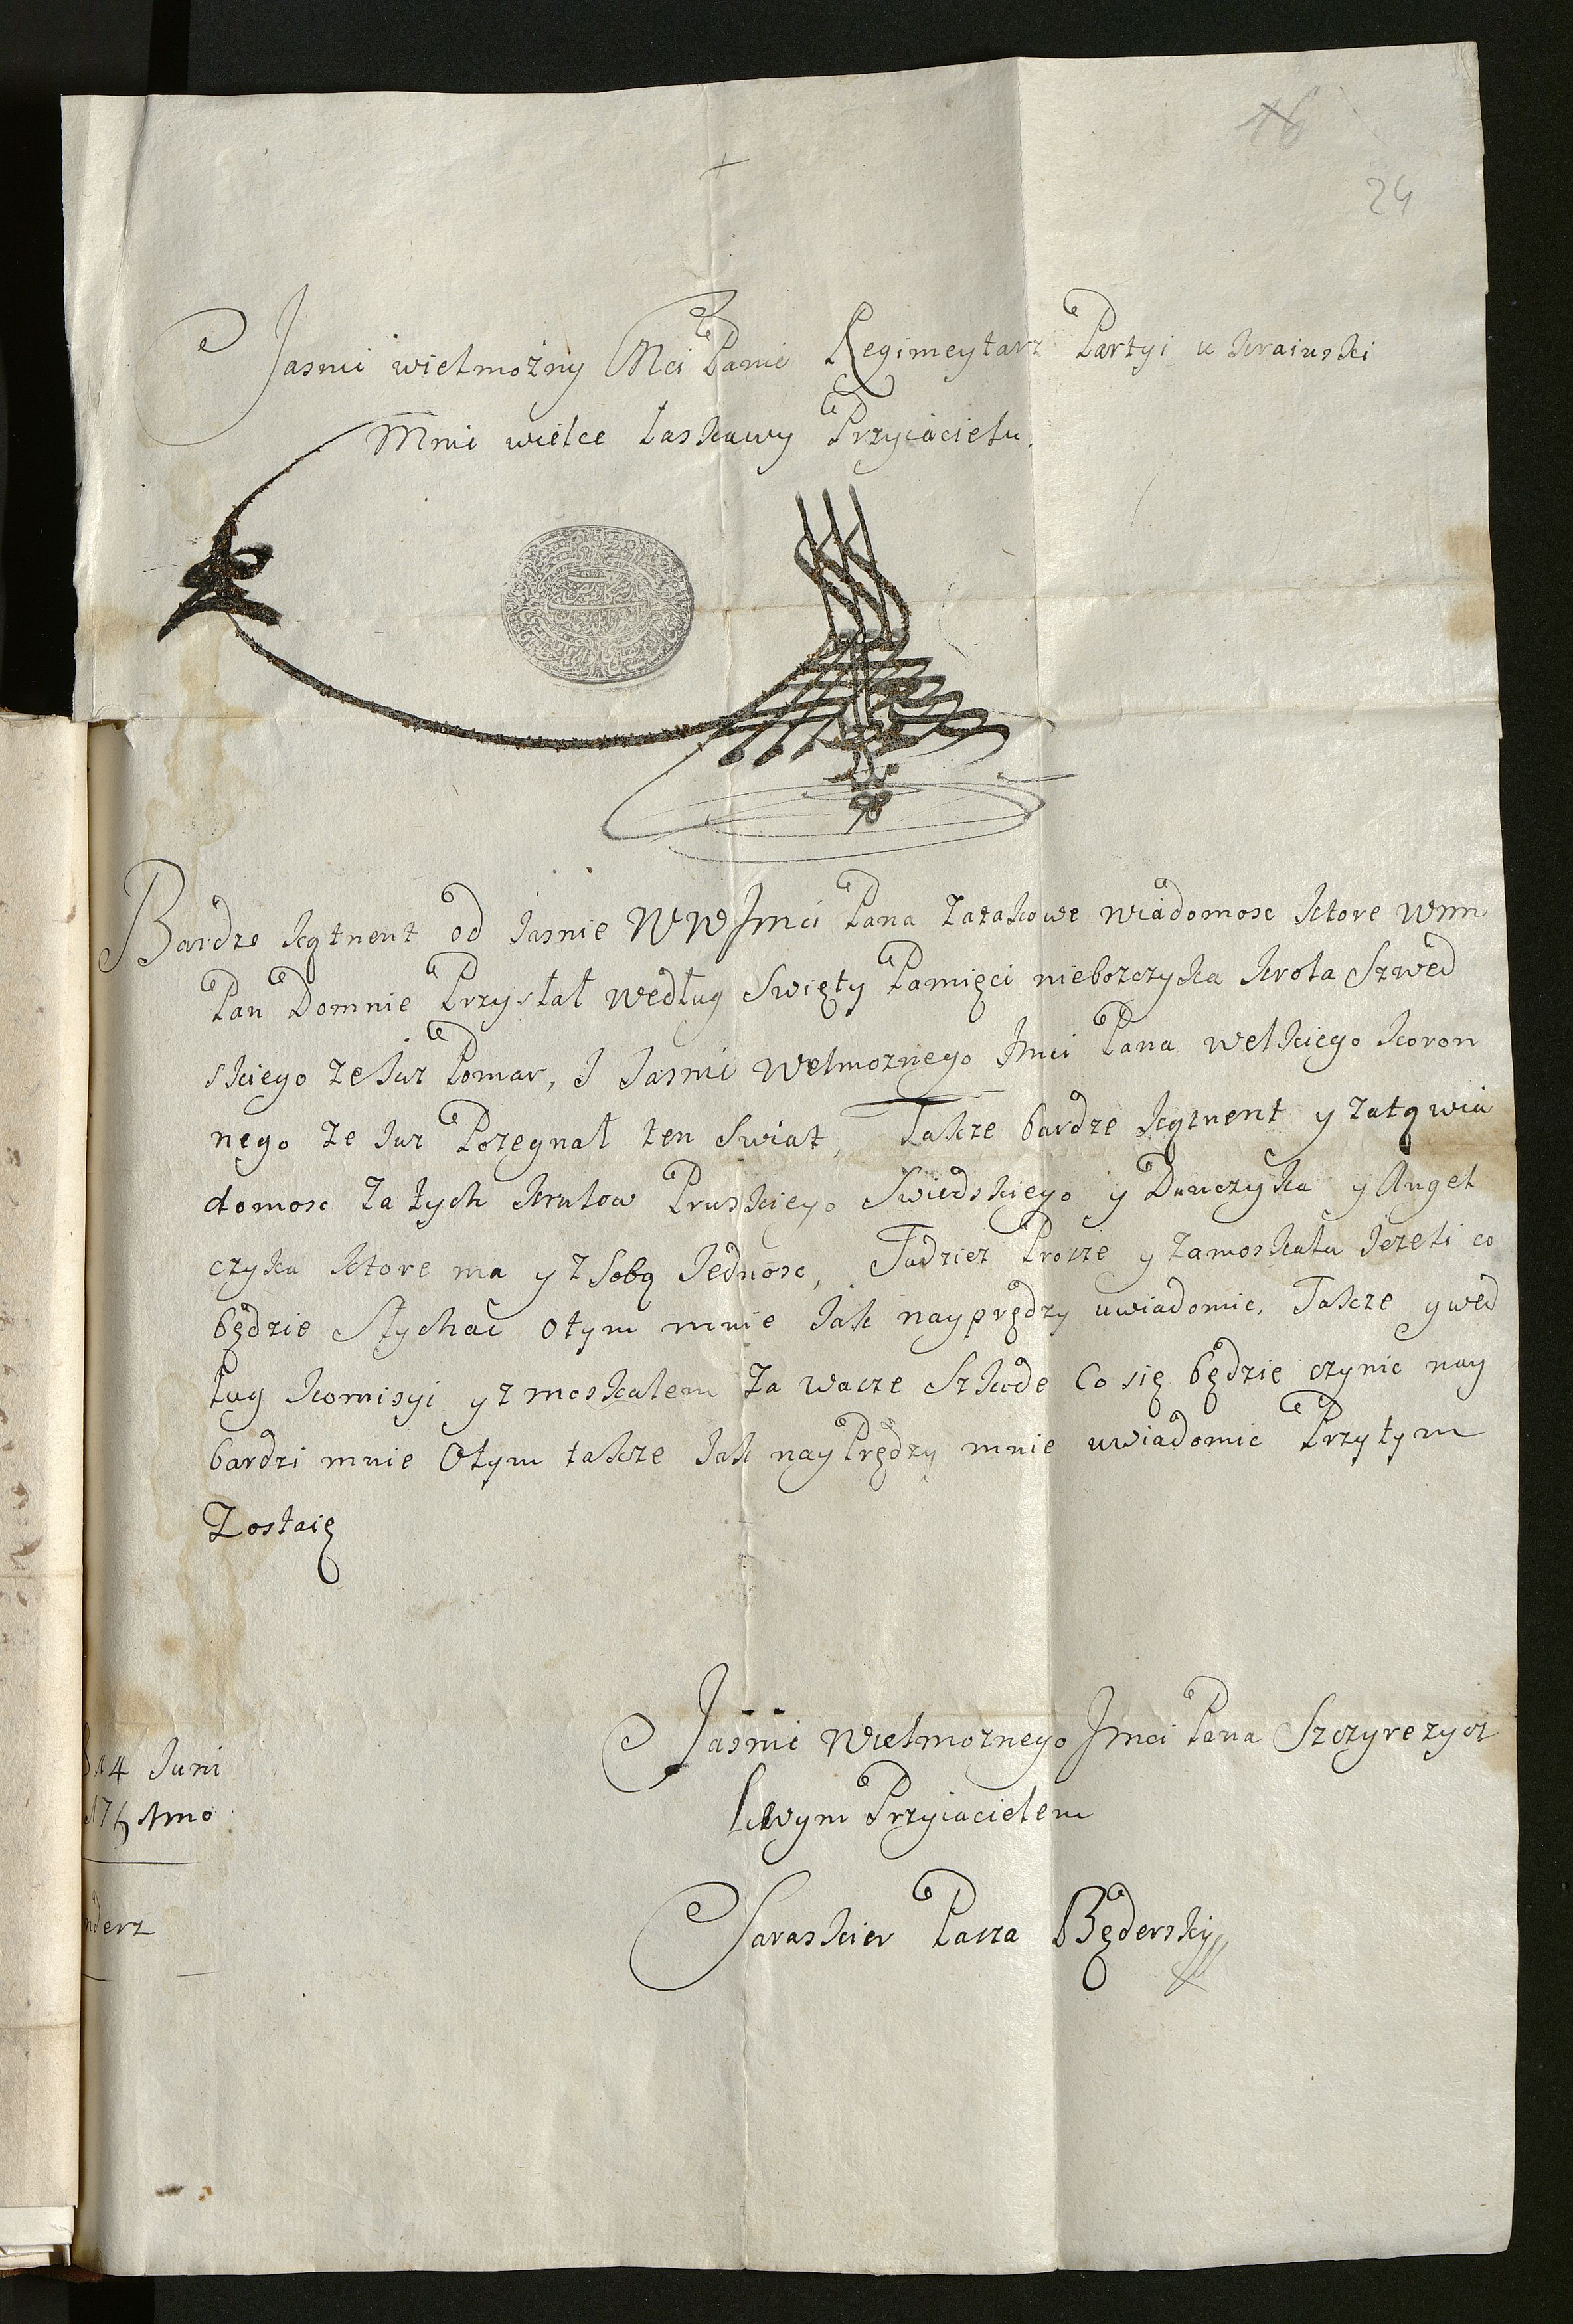 24
Jasnie wielmożny Mci Panie Regimeytarz Partyi ukrainski
Mnie wielce Łaskawy Przyiacielu.
Bardzo kątnent od Jasnie WW Jmci Pana Zatakowe wiadomosc ktore Wmm
Pan Domnie Przystał według Swięty Pamięci niebozczyka krola Szwed
skiego ze Juz Pomar, I Jasnie Welmoznego Jmci Pana welkiego koron
nego ze Juz Pozegnał ten Swiat, Takze bardze kątnent y zatą wia
domosc za tych krulow Pruskiego Swiedskiego y Dunczyka y Angel
czyka ktore ma y z Sobą Jednosc, Tudziez Prosze y zamoskala Jezeli co
będzie Słychać otym mnie Jak nayprędzy uwiadomic, Takze ywed
ług komisyi y z moskalem za wasze Szkode Co się będzie czynic nay
bardzi mnie Otym takze Jak nayPrędzy mnie uwiadomic Przytym
Zostaię
Jasnie Wielmoznego Jmci Pana Szczyrezycz
liwym Przyiacielem
Saraskier Pasza Będerski
14 Juni
Anno
nderz